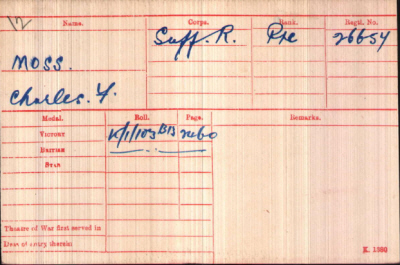 Name. Corps. Rank. Regtl. No.
12
Suff. R. Pte 26654
MOSS.
Charles. Y.
Medal. Roll. Page. Remarks.
VICTORY K/1/103 B13 2260
BRITISH
STAR
Theatre of War first served in
Date of entry therein
K. 1380